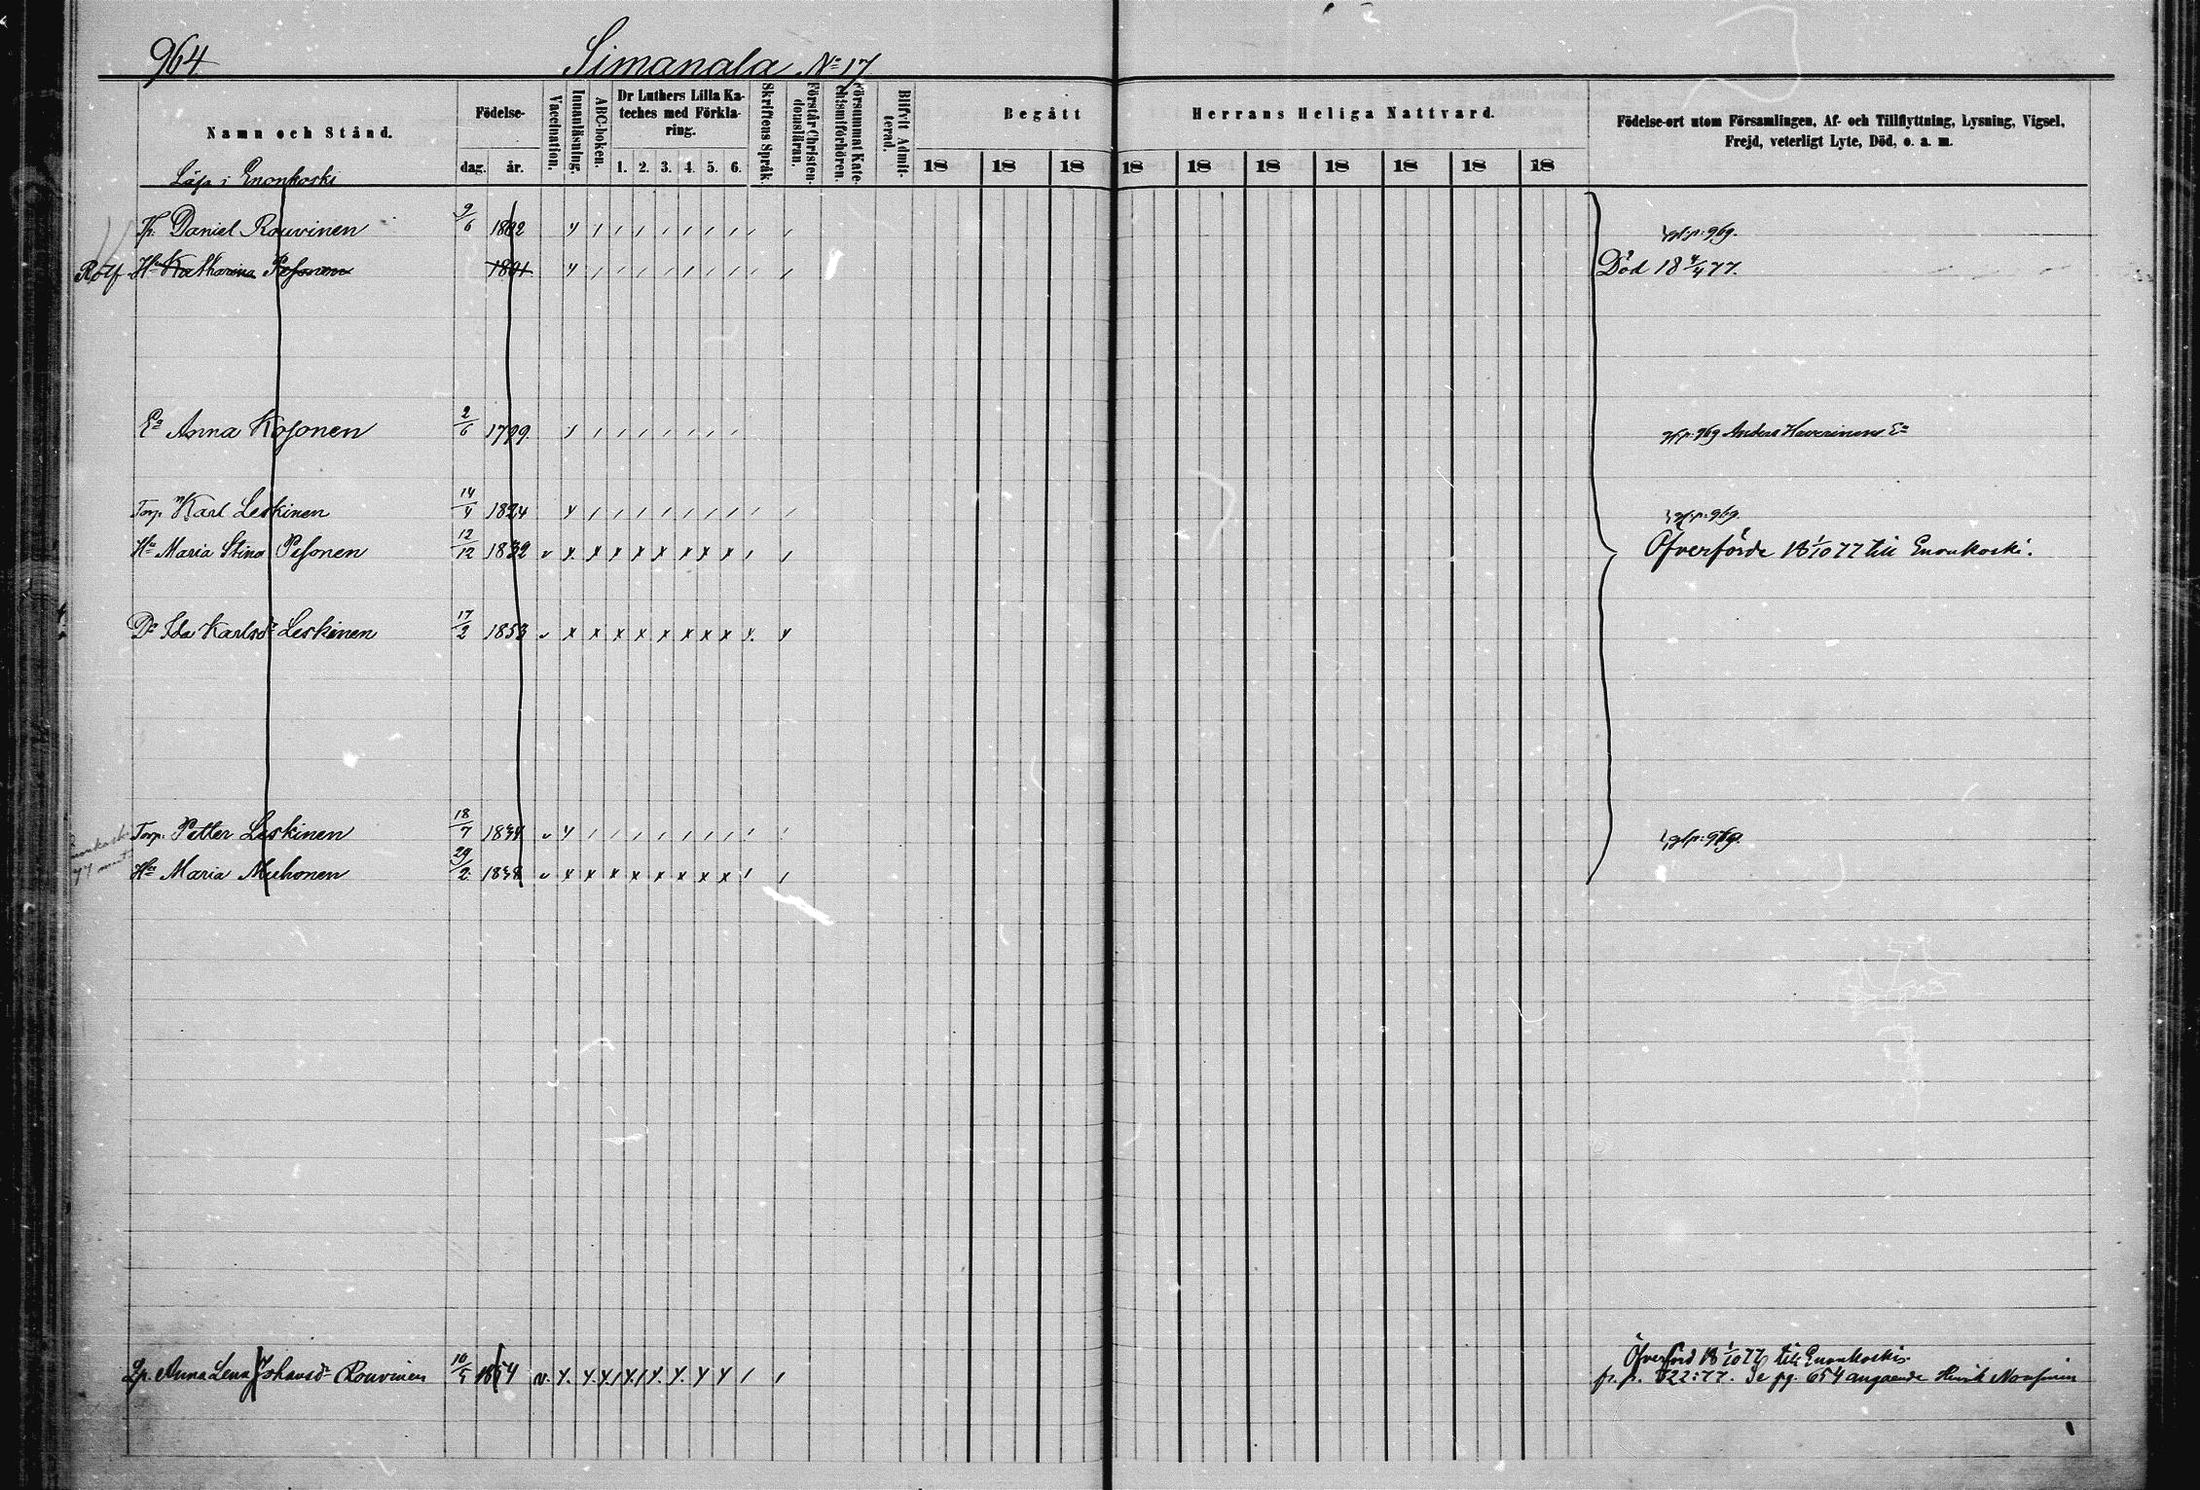 964
Simanala No 17
Namn och Stånd.
Födelse-
dag. år.
Vaccination.
Innanläsning.
ABC-boken.
Dr Luthers Lilla Ka-
teches med Förkla-
ring.
1. 2. 3. 4. 5. 6.
Skriftens Språk.
Förstår Christen-
domsläran.
Försummat Kate-
chismiförhören.
Blifvit Admit-
terad.
Begått Herrans Heliga Nattvard.
18 18 18 18 18 18 18 18 18 18
Födelse-ort utom Församlingen, Af- och Tillflyttning, Lysning, Vigsel,
Frejd, veterligt Lyte, Död, o. a. m.
i Enonkoski
Daniel Rouvinen 9/6 1802
Hu Katharina Pesonen 1801 Död 18 4/4 77.
Ea Anna Kosonen 2/6 1799. Anders Haverinens Ea
Torp. Karl Leskinen 14/4 1824
Hu Maria Stina Pesonen 12/12 1832 Öfverförde 18 1/10 77 till Enonkoski.
Dr Ida Karlsdr Leskinen 17/2 1853
Torp. Petter Leskinen 18/7 1834
Hu Maria Muhonen 29/2 1838
Anna Lena Johansdr Rouvinen 10/5 1854 Öfverförd 18 1/10 77 till Enonkoski.
fr. p. 522:77. Se pg. 654 angående Henrik